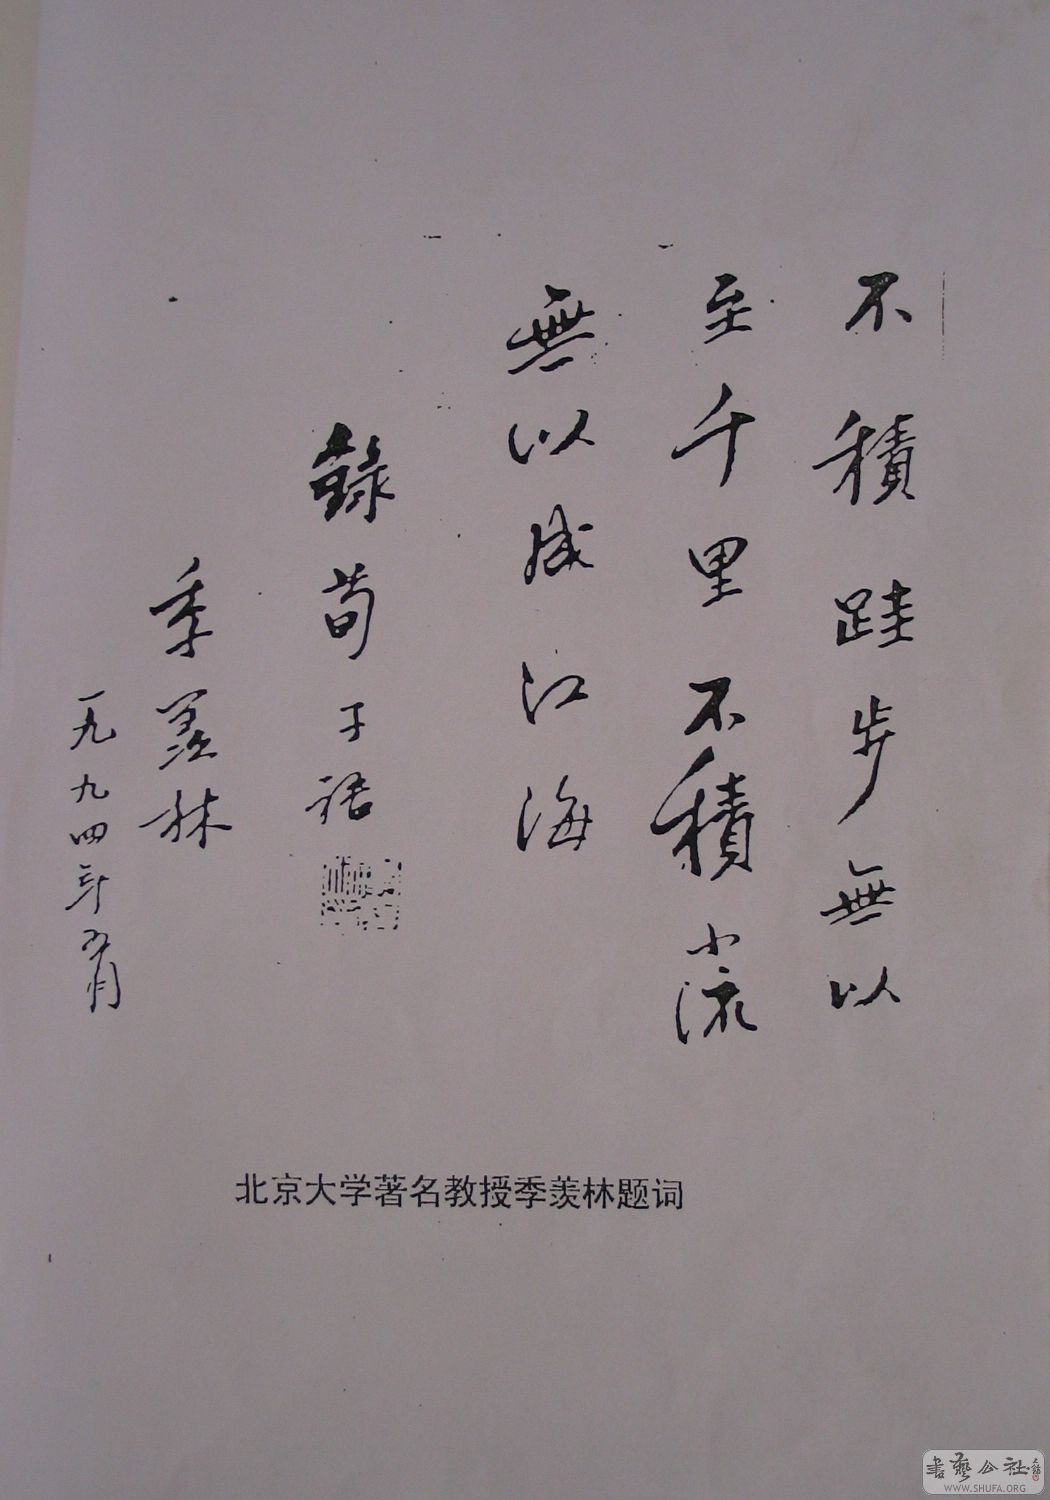 不積跬步無以
至千里不積小流
無以成江海
錄荀子語
季羡林
一九九四年五月
北京大学著名教授季羡林题词
書藝公社
WWW.SHUFA.ORG